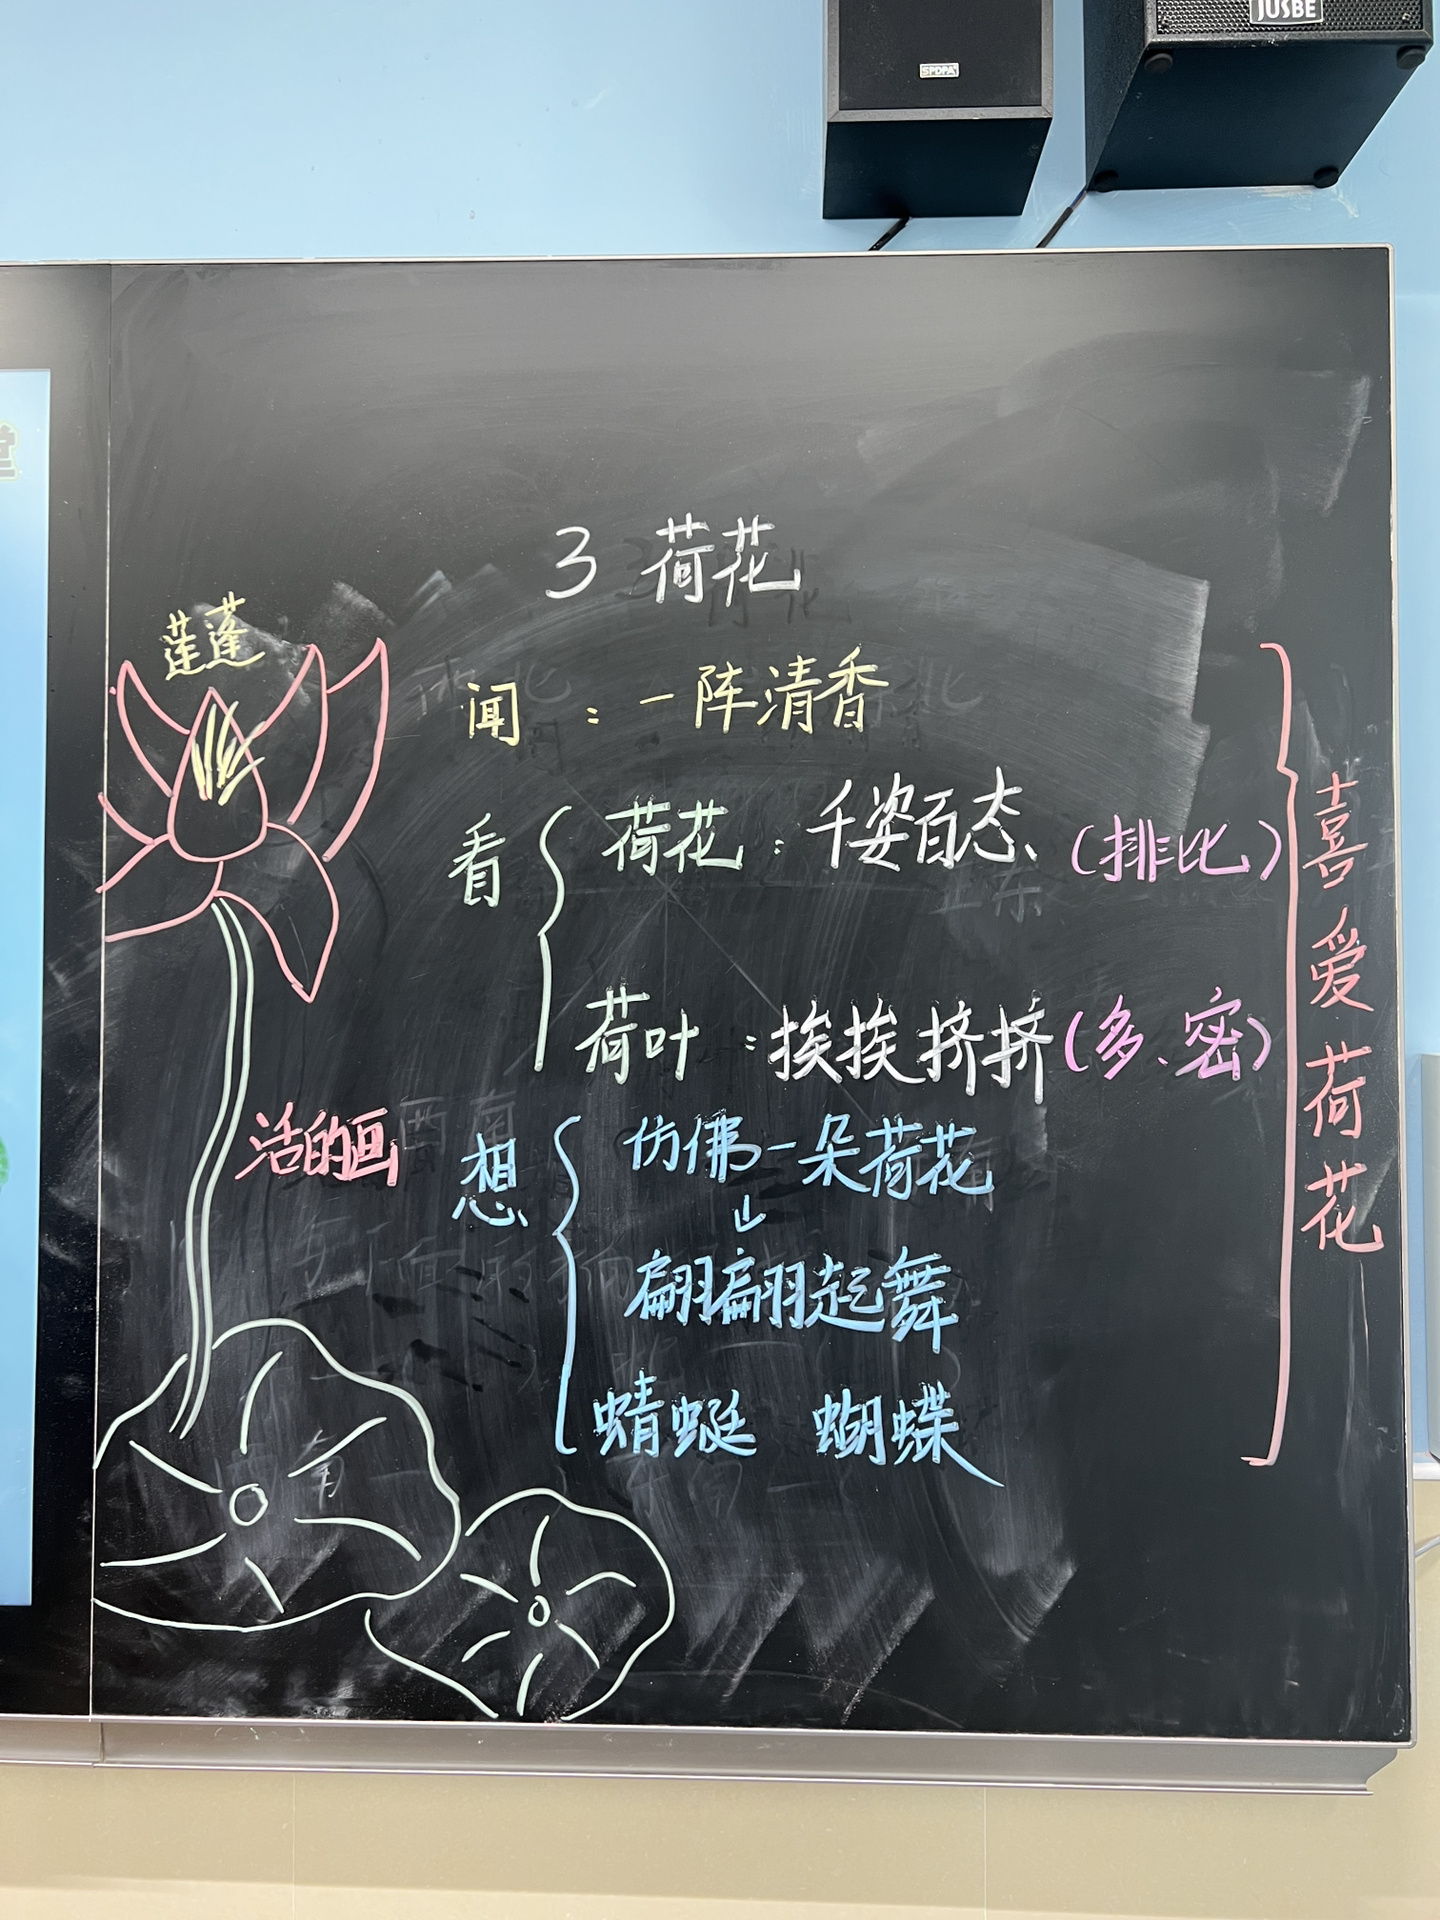 JUSBE
SPDPA
堂
3 荷花
莲蓬
闻：一阵清香
看
荷花：千姿百态（排比）
荷叶：挨挨挤挤（多、密）
活的画
想
仿佛一朵荷花
↓
翩翩起舞
蜻蜓 蝴蝶
喜爱荷花